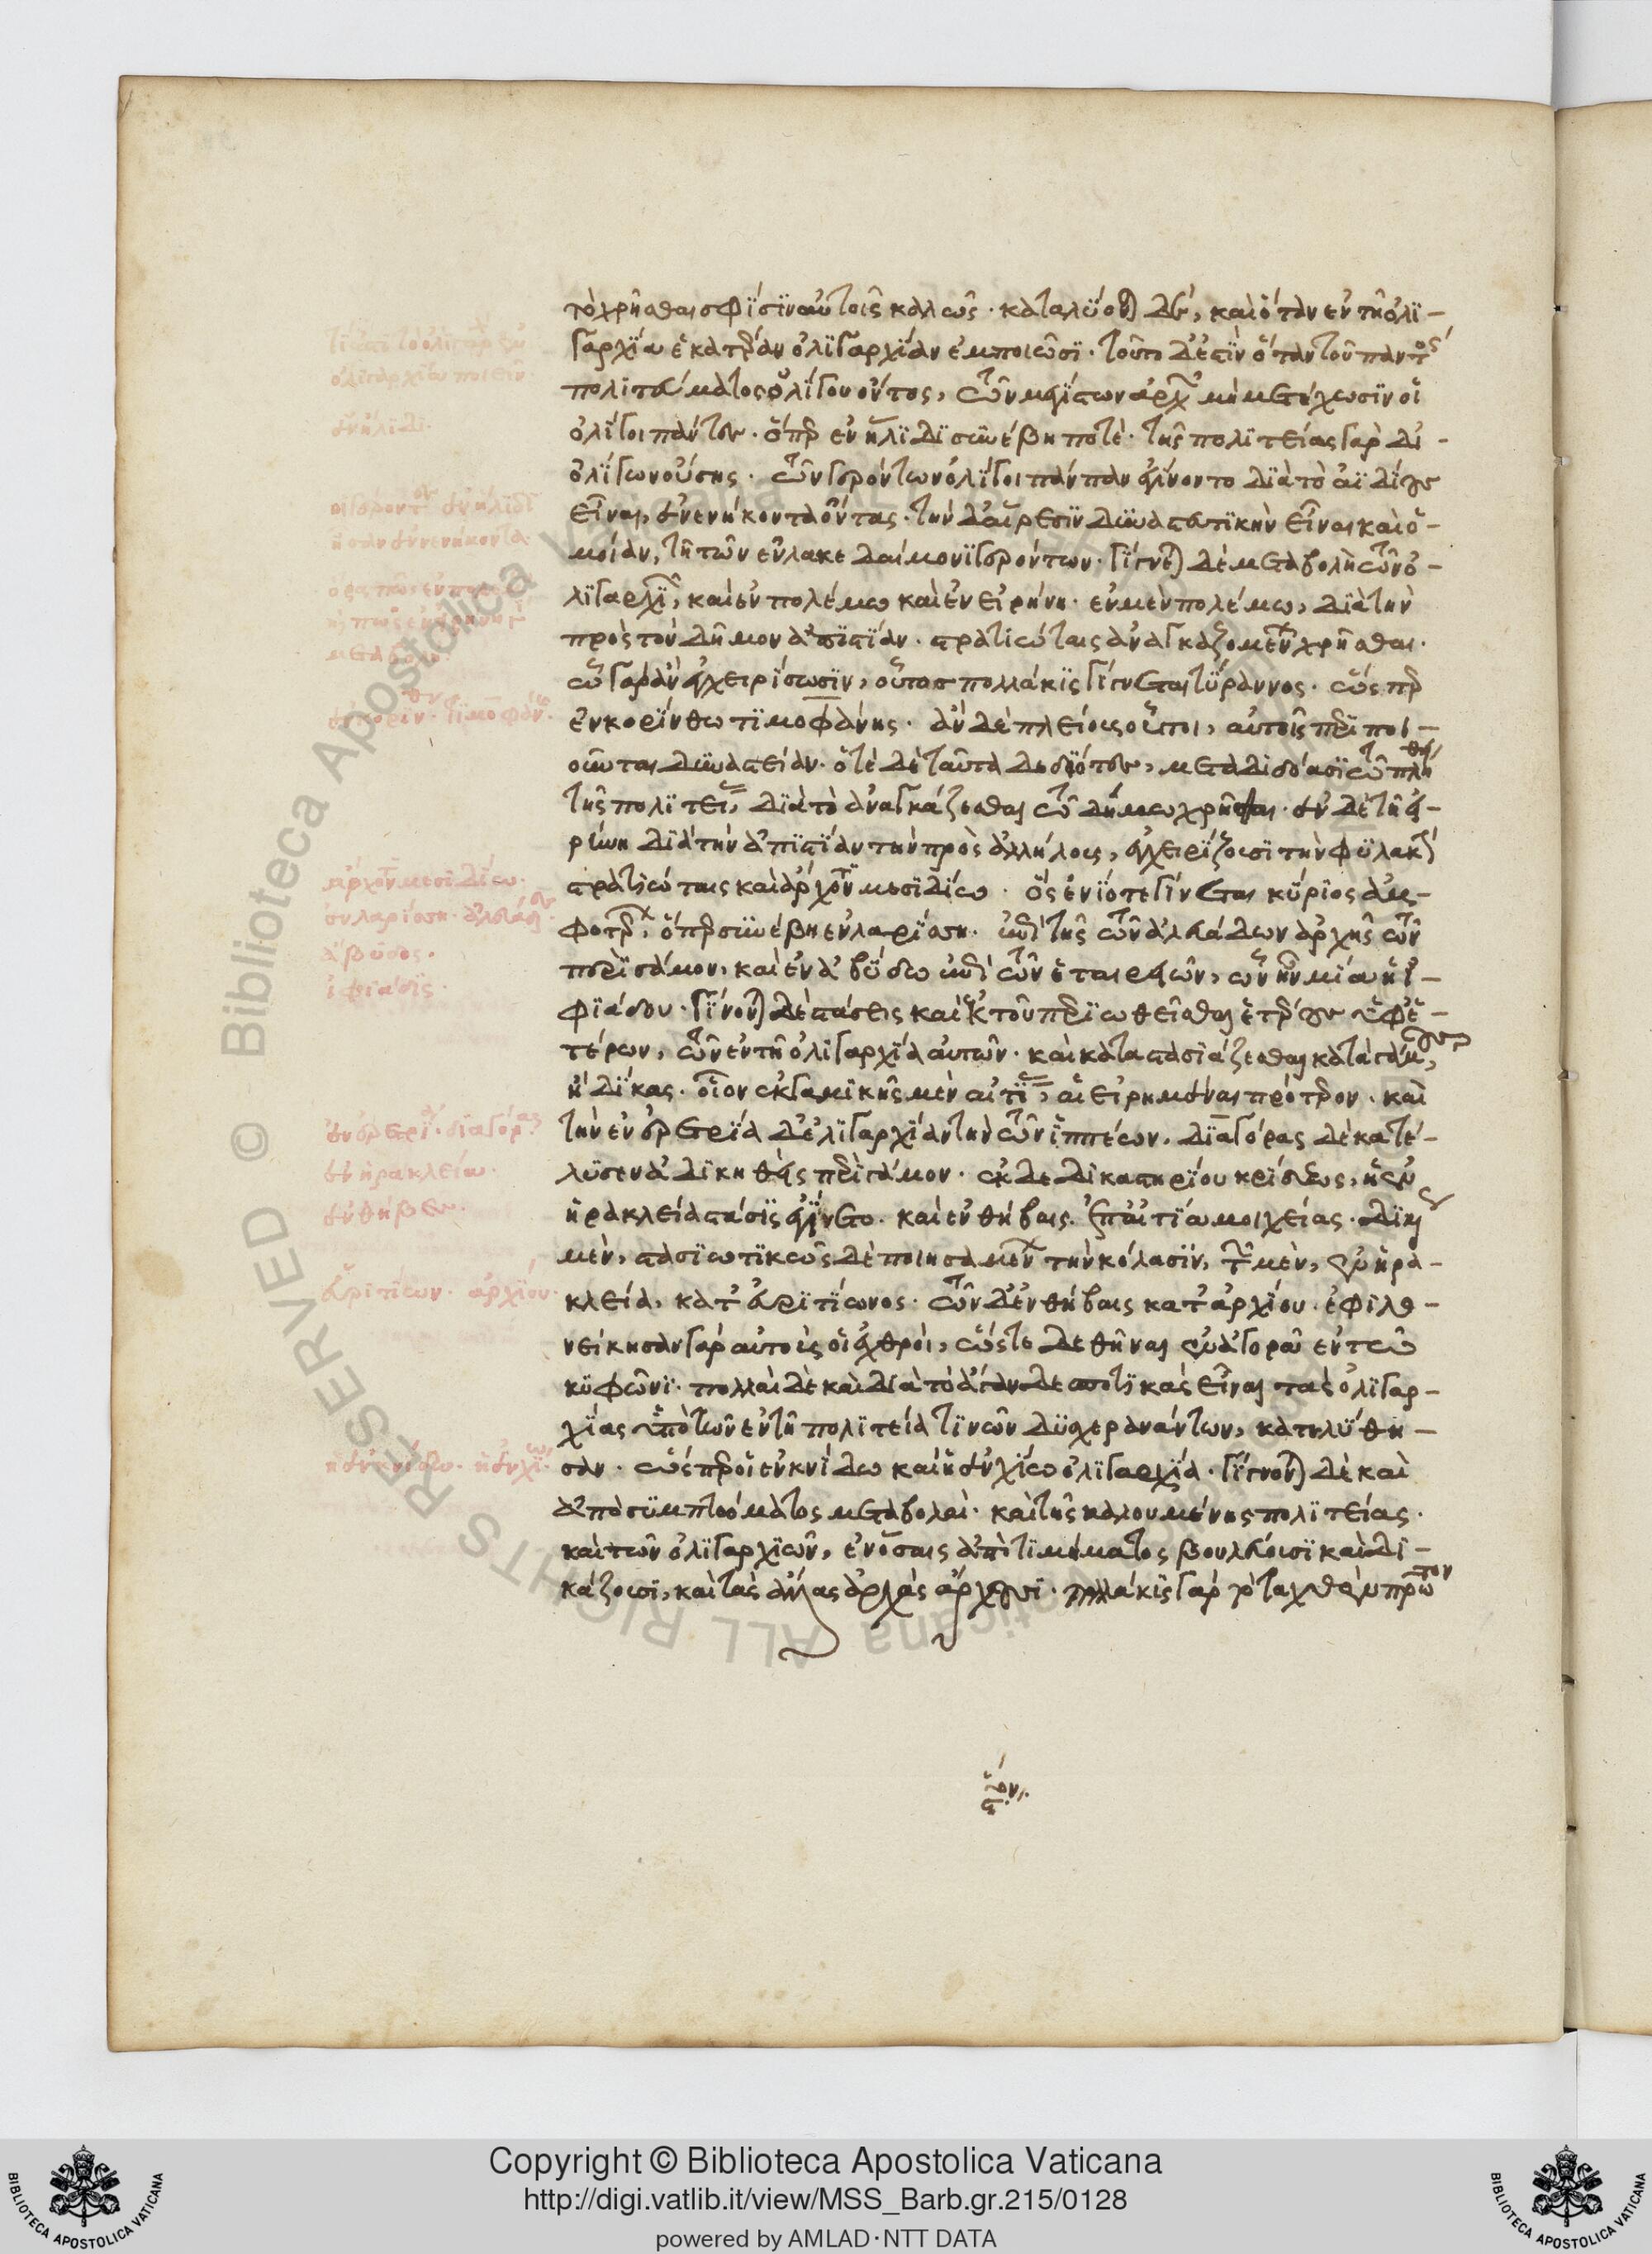 τὸ χρῆσθαι σφίσιν αὐτοῖς καλῶς · καταλύονται δὲ, καὶ ὅταν ἐν τῇ ὀλι-
γαρχία ἑκατέραν ὀλιγαρχίαν ἐμποιῶσι · τοῦτο δ' ἐστὶν ὅταν τοῦ παντὸς
πολιτεύματος ὀλίγου ὄντος, τῶν μεγίστων ἀρχῶν μὴ μετέχωσιν οἱ
ὀλίγοι πάντες · ὅπερ ἐν ἤλιδι συνέβη ποτὲ · τῆς πολιτείας γὰρ δι'
ὀλίγων οὔσης · τῶν γερόντων ὀλίγοι πάνπαν ἐγίνοντο διὰ τὸ ἀϊδίους
εἶναι, ἐνενήκοντα ὄντας · τὴν δ' αἵρεσιν δυναστευτικὴν εἶναι καὶ ὁ-
μοίαν, τῇ τῶν ἐν λακεδαίμονι γερόντων · γίγνεται δὲ μεταβολὴ τῶν ὀ-
λιγαρχιῶν, καὶ ἐν πολέμω καὶ ἐν εἰρήνη · ἐν μὲν πολέμω, διὰ τὴν
πρὸς τὸν δῆμον ἀπιστίαν · στρατιώταις ἀναγκαζομένων χρῆσθαι ·
ᾧ γὰρ ἂν ἐγχειρίσωσιν, οὗτος πολλάκις γίγνεται τύραννος · ὥσπερ
ἐν κορίνθω τιμοφάνης · ἂν δὲ πλείους οὗτοι, αὑτοῖς περιποι-
οῦνται δυναστείαν · ὁτὲ δὲ ταῦτα δεδιότες, μεταδιδόασι τῶ πλήθει
τῆς πολιτείας, διὰ τὸ ἀναγκάζεσθαι τῶ δήμω χρῆσθαι · ἐν δὲ τῇ εἰ-
ρήνη διὰ τὴν ἀπιστίαν τὴν πρὸς ἀλλήλους, ἐγχειρίζουσι τὴν φυλακὴν
στρατιώταις καὶ ἄρχοντι μεσιδίω · ὃς ἐνίοτε γίνεται κύριος ἀμ-
φοτέρων, ὅπερ συνέβη ἐν λαρίσση · ἐπὶ τῆς τῶν ἀλευάδων ἀρχῆς τῶν
περὶ σάμον, καὶ ἐν ἀβύδω ἐπὶ τῶν ἑταιρειῶν, ὧν ἦν μία ἡ ἰ-
φιάδου · γίνονται δὲ στάσεις καὶ ἐκ τοῦ περιωθεῖσθαι ἑτέρους ὑφ' ἑ-
τέρων, τῶν ἐν τῇ ὀλιγαρχία αὐτῶν · καὶ καταστασιάζεσθαι κατὰ γάμους,
ἢ δίκας · οἷον ἐκ γαμικῆς μὲν αἰτίας, αἱ εἰρημέναι πρότερον · καὶ
τὴν ἐν ἐρετρία δ' ὀλιγαρχίαν τὴν τῶν ἱππέων, διαγόρας δὲ κατέ-
λυσεν ἀδικηθεὶς περὶ γάμον · ἐκ δὲ δικαστηρίου κρίσεως, ἡ ἐν
ἡρακλεία στάσις ἐγένετο · καὶ ἐν θήβαις · ἐπ' αἰτία μοιχείας · δικαίως
μὲν, στασιωτικῶς δὲ ποιησαμένων τὴν κόλασιν, τῶν μὲν, ἐν ἡρα-
κλεία, κατ' εὐριτίωνος · τῶν δ' ἐν θήβαις κατ' ἀρχίου · ἐφιλο-
νείκησαν γὰρ αὐτοὺς οἱ ἐχθροὶ, ὥστε δεθῆναι ἐν ἀγορᾶ ἐν τῶ
κύφωνι · πολλαὶ δὲ καὶ διὰ τὸ ἄγαν δεσποτικὰς εἶναι τὰς ὀλιγαρ-
χίας ὑπὸ τῶν ἐν τῇ πολιτεία τινῶν δυσχερανάντων, κατελύθη-
σαν · ὥσπερ ἡ ἐν κνίδω καὶ ἡ ἐν χίω ὀλιγαρχία · γίγνονται δὲ καὶ
ἀπὸ συμπτώματος μεταβολαὶ · καὶ τῆς καλουμένης πολιτείας ·
καὶ τῶν ὀλιγαρχιῶν, ἐν ὅσαις ἀπὸ τιμήματος βουλεύουσι καὶ δι-
κάζουσι, καὶ τὰς ἄλλας ἀρχὰς ἄρχουσι · πολλάκις γὰρ τὸ ταχθὲν πρῶτον
ἐν κορίν(θω) · τιμοφάν(ης)
ἄρχοντι μεσιδίω ·
ἐν λαρίσση · ἀλευάδ(ων)
ἄβυδος ·
ἰφιάδης ·
ἐν ἡρακλεία ·
ἐν θήβαις ·
ἀρχίου ·
Copyright © Biblioteca Apostolica Vaticana
http://digi.vatlib.it/view/MSS_Barb.gr.215/0128
powered by AMLAD · NTT DATA